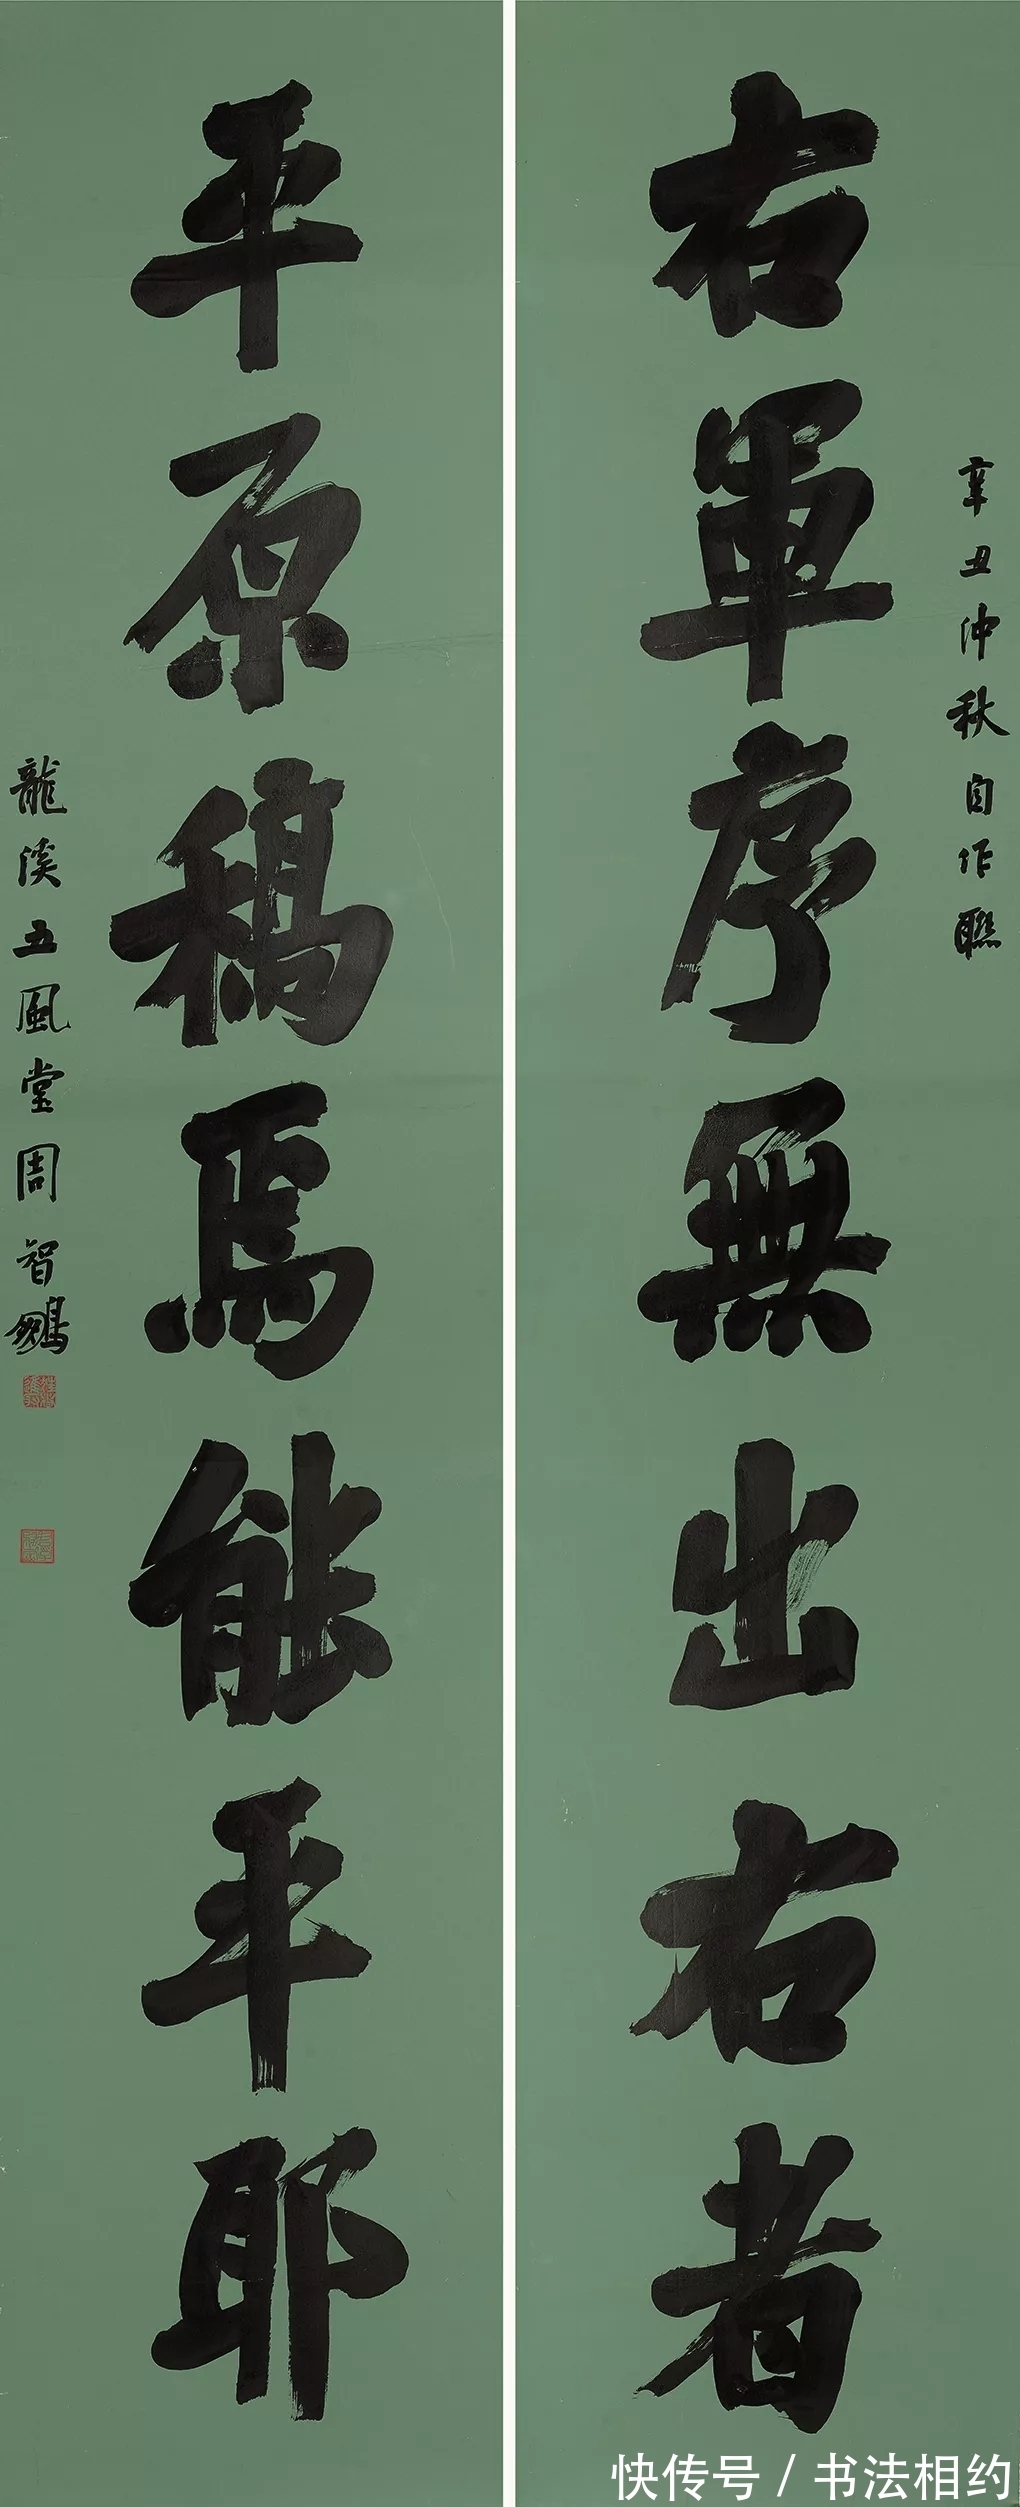 辛丑仲秋自作聯
右軍序無出右者
平原稿焉能平耶
龍溪五風堂周智鵬
快传号 / 书法相约